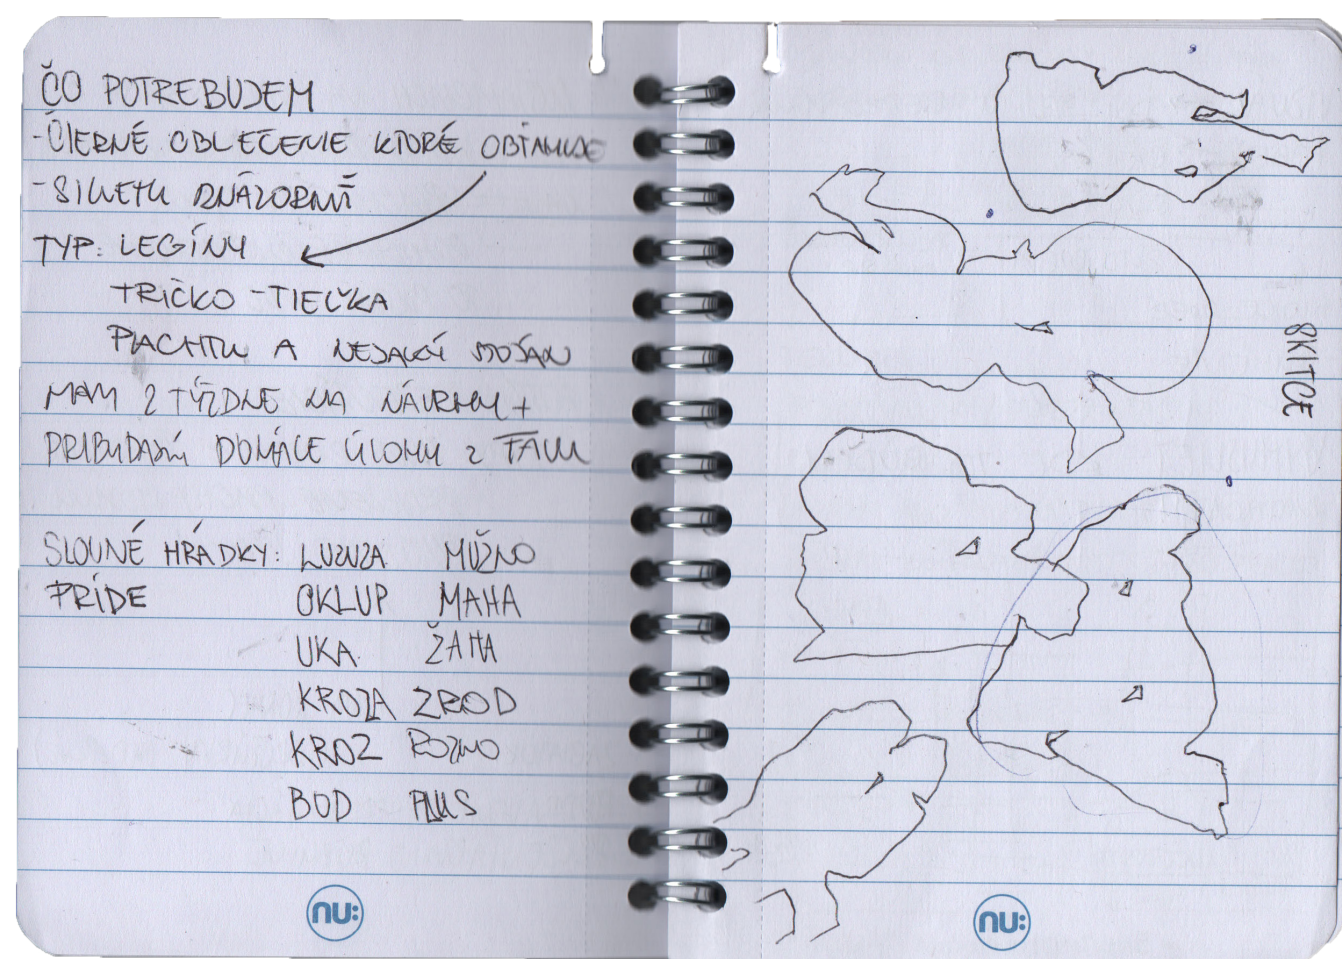 ČO POTREBUJEM
-ČIERNÉ OBLEČENIE KTORÉ OBTAHUJE
-SILUETU ZNÁZORNÍ
TYP: LEGÍNY
TRIČKO-TIELKA
PLACHTU A NEJAKÝ STOJAN
MAM 2 TÝŽDNE NA NÁVRHY +
PRIBUDAJÚ DOMÁCE ÚLOHY Z
SLOVNÉ HRÁDKY: LUZUZA MUŽNO
PRÍDE OKLUP MAHA
UKA ŽAHA
KROZA ZROD
KROZ ROZNO
BOD PLUS
SKITCE
nu:
nu: